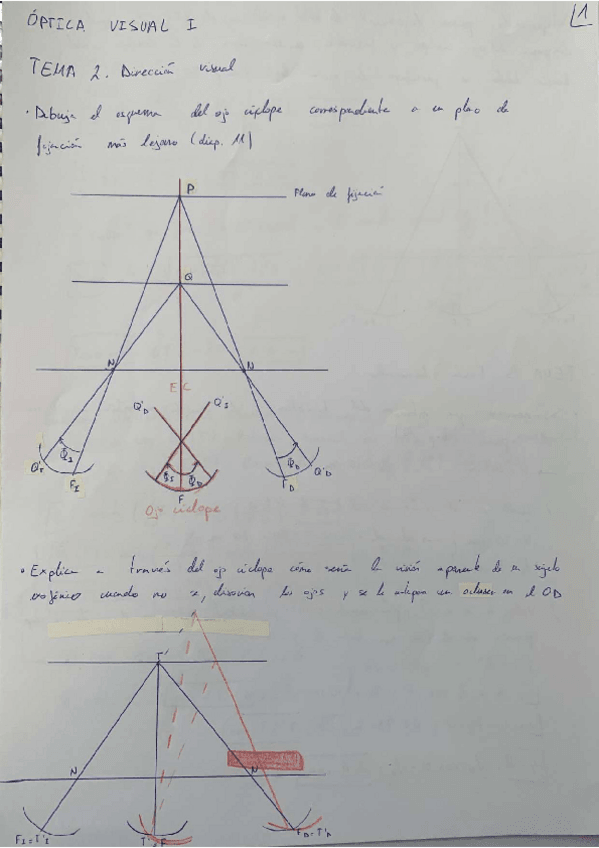 1
ÓPTICA VISUAL I
TEMA 2. Dirección visual
· Dibuja el esquema del ojo cíclope correspondiente a un plano de
fijación más lejano (diap. 11)
P
Plano de fijación
Q
N N
E C
Q'D Q'I
Q'I ΦI ΦI ΦD ΦD Q'D
FI F FD
Ojo cíclope
· Explica a través del ojo cíclope cómo sería la visión aparente de un sujeto
cuando no se disocian los ojos y se le antepon un oclusor en el OD
T'
N N
FI = T'I T' = F FD = T'D